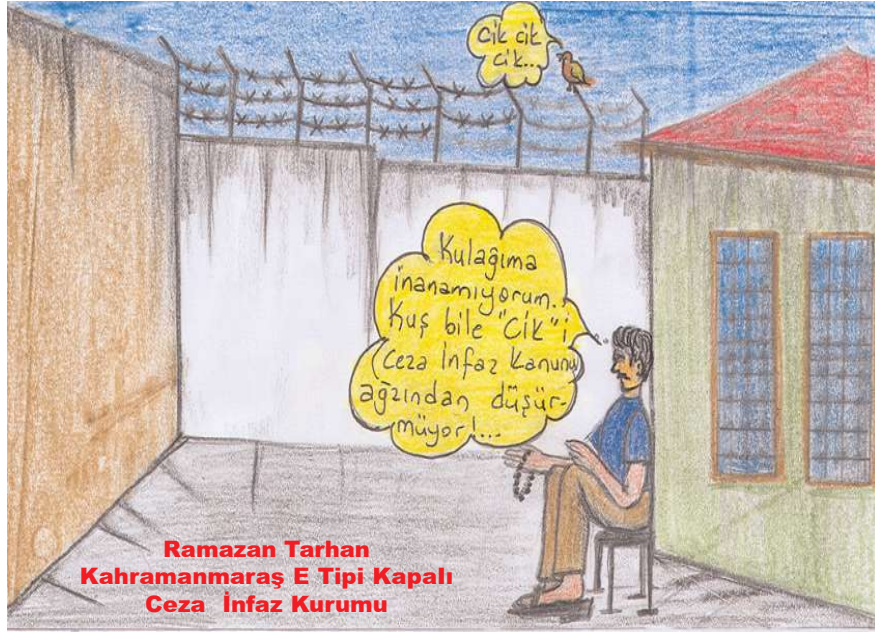 Cik cik
cik...
Kulağıma
inanamıyorum..
Kuş bile "CİK"i
(Ceza İnfaz Kanunu)
ağzından düşür-
müyor!...
Ramazan Tarhan
Kahramanmaraş E Tipi Kapalı
Ceza İnfaz Kurumu